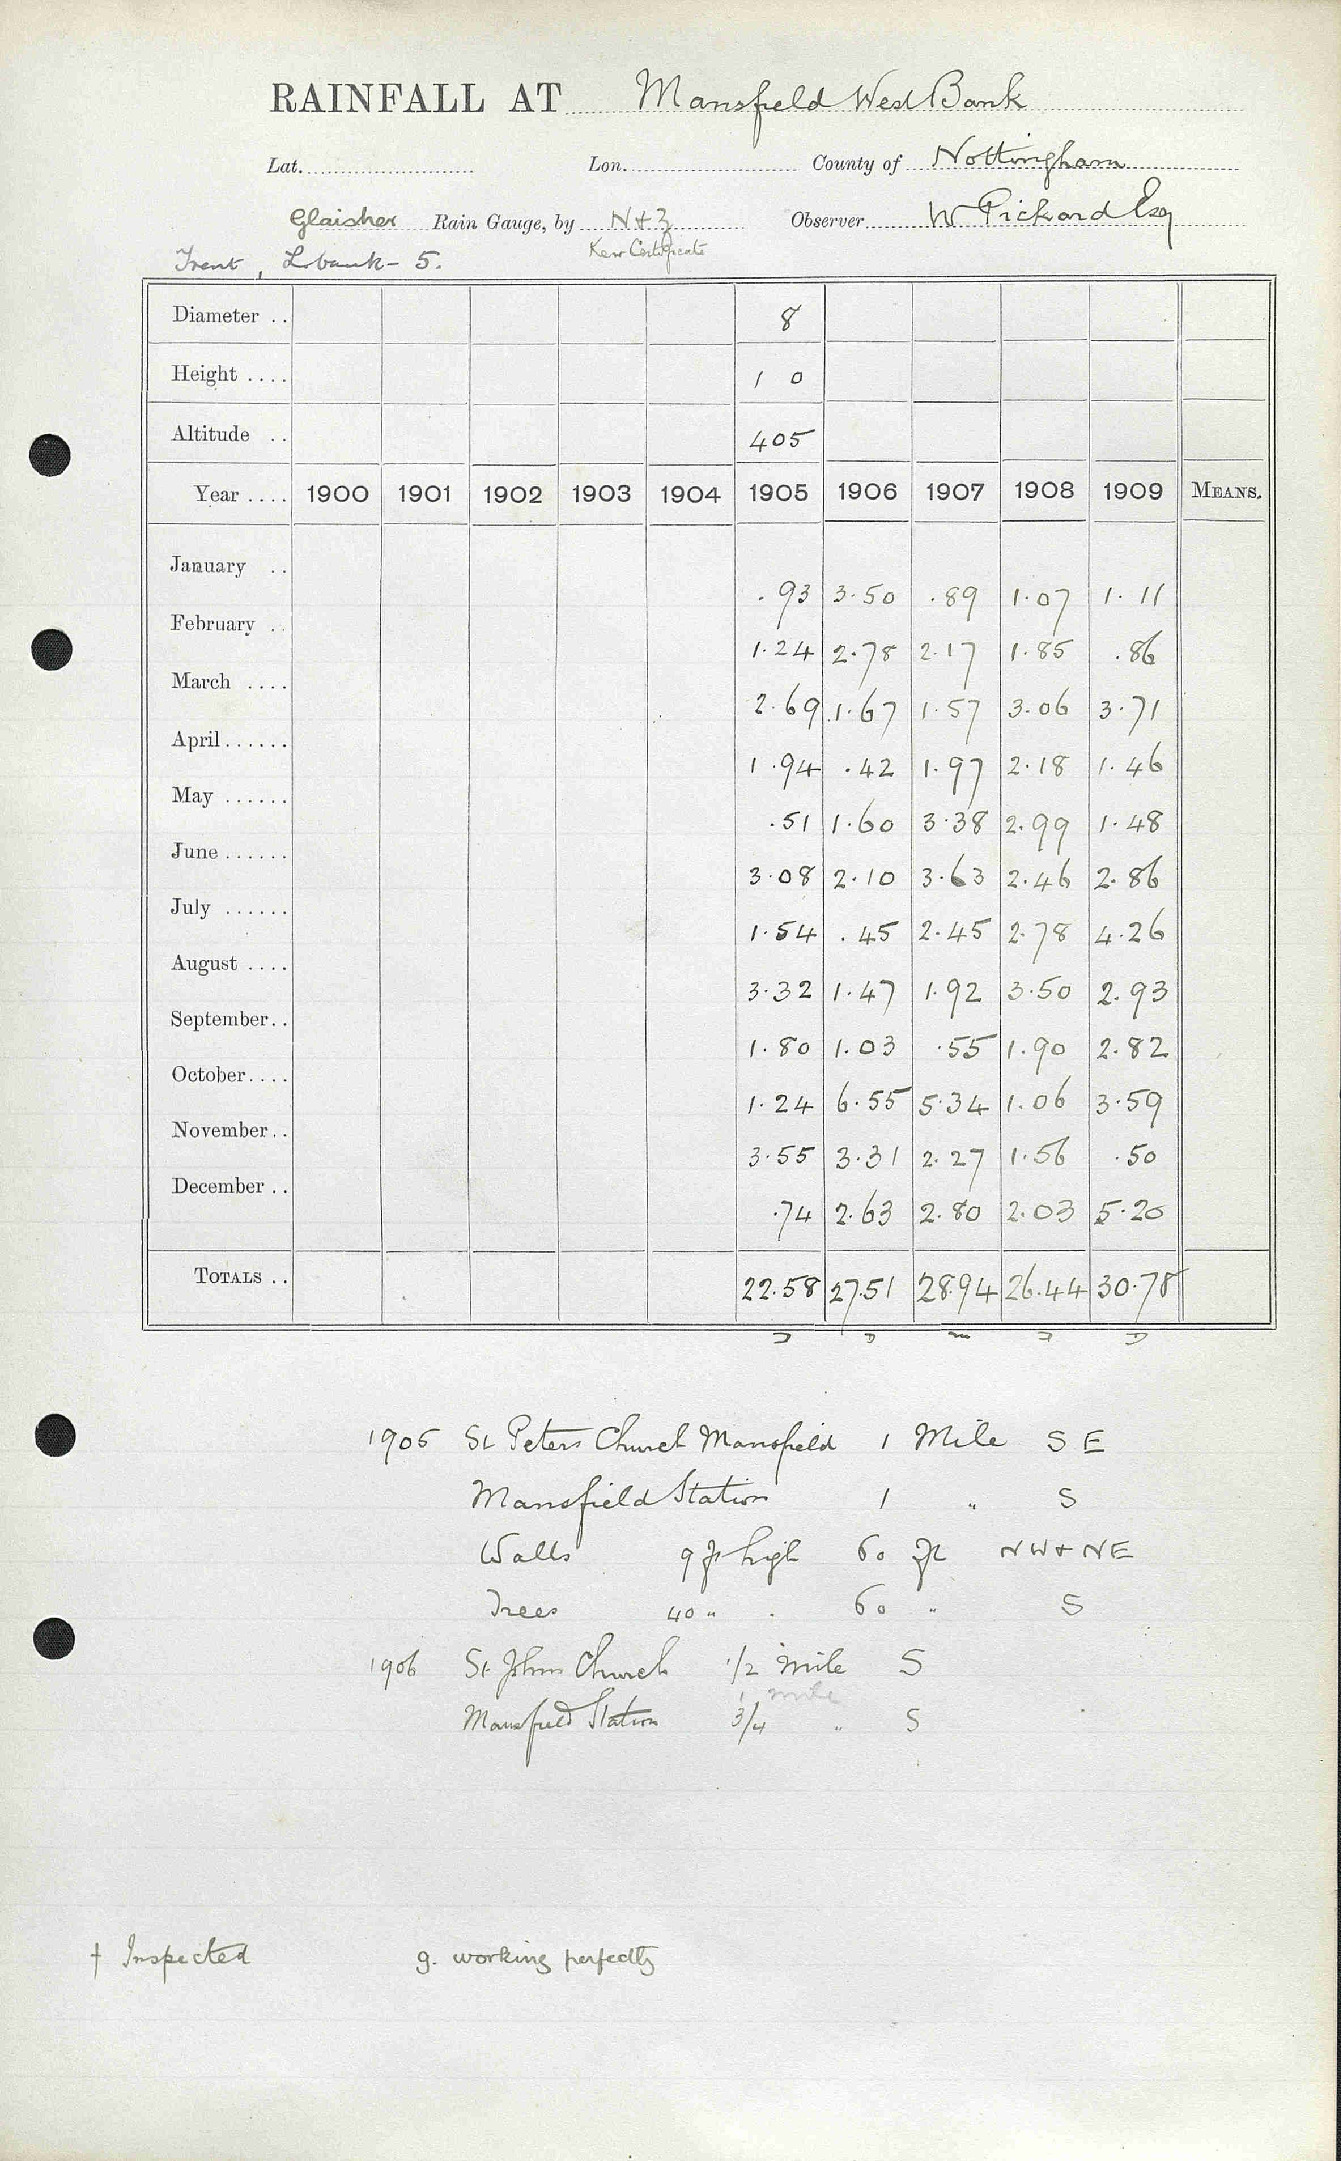 RAINFALL AT Mansfield West Bank
Lat. Lon. County of Nottingham
Glaisher Rain Gauge, by N+Z Observer W Pickard Esq
Kew Certificate
Trent, L bank - 5.
Diameter .. 8
Height .... 1 0
Altitude .. 405
Year .... 1900 1901 1902 1903 1904 1905 1906 1907 1908 1909 MEANS.
January .. .93 3.50 .89 1.07 1.11
February .. 1.24 2.78 2.17 1.85 .86
March .... 2.69 1.67 1.57 3.06 3.71
April ...... 1.94 .42 1.97 2.18 1.46
May ...... .51 1.60 3.38 2.99 1.48
June ...... 3.08 2.10 3.63 2.46 2.86
July ...... 1.54 .45 2.45 2.78 4.26
August .... 3.32 1.47 1.92 3.50 2.93
September.. 1.80 1.03 .55 1.90 2.82
October.... 1.24 6.55 5.34 1.06 3.59
November.. 3.55 3.31 2.27 1.56 .50
December .. .74 2.63 2.80 2.03 5.20
TOTALS .. 22.58 27.51 28.94 26.44 30.78
1905 St Peters Church Mansfield 1 Mile S E
Mansfield Station 1 " S
Walls 9 ft high 60 ft NW + NE
Trees 40 " . 60 " S
1906 St Johns Church 1/2 mile S
1 mile
Mansfield Station 3/4 " S
† Inspected g. working perfectly